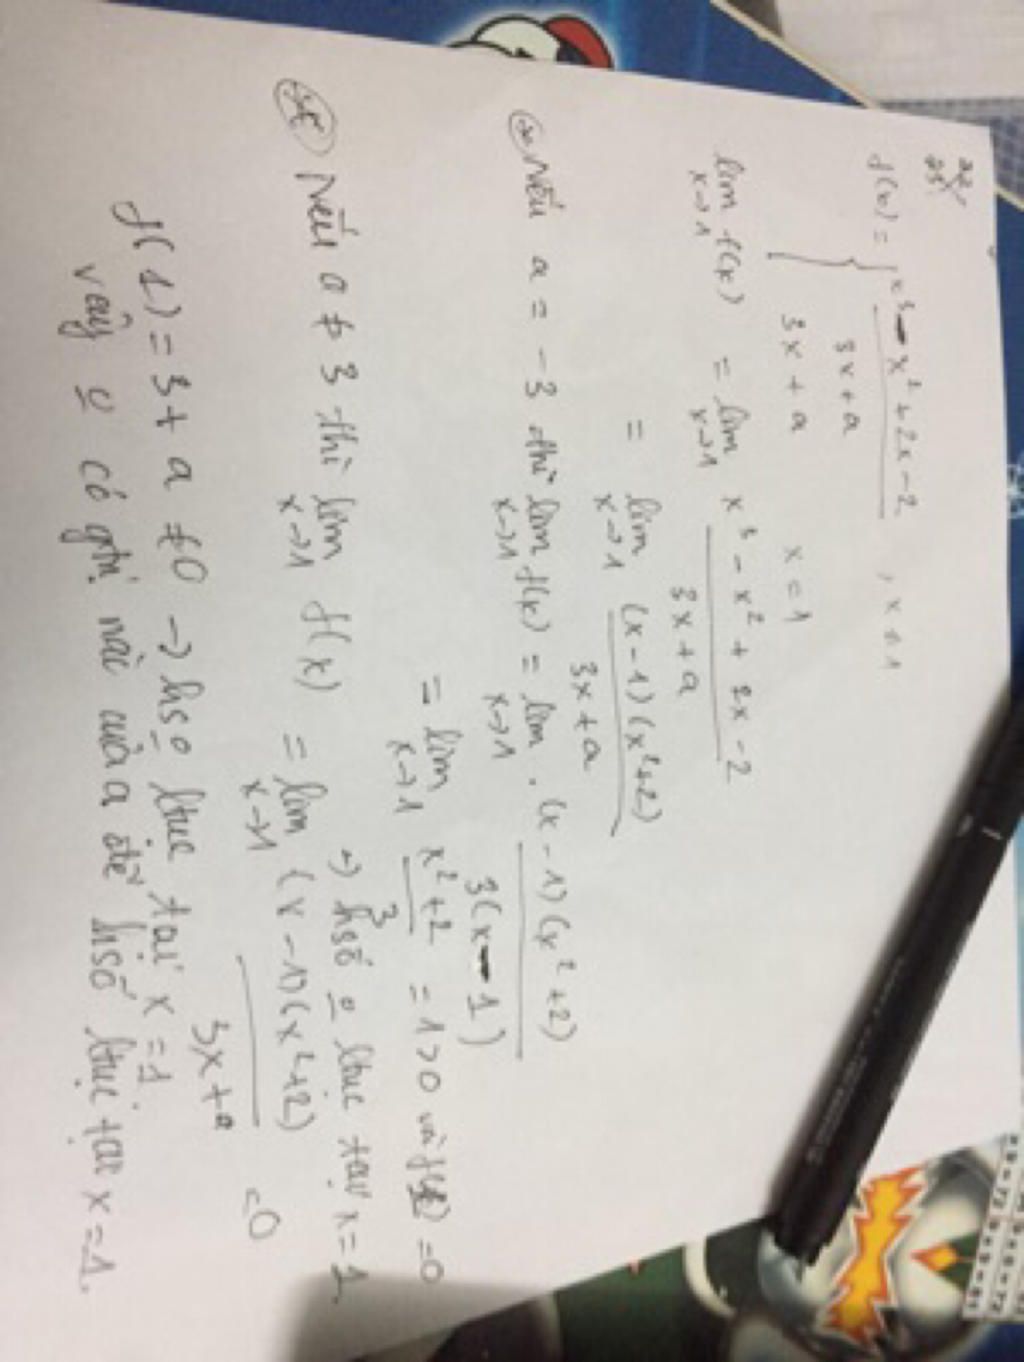 f(x) = { x³ - x² + 2x - 2 / 3x + a , x ≠ 1
3x + a x = 1
lim x→1 f(x) = lim x→1 x³ - x² + 2x - 2 / 3x + a
= lim x→1 (x - 1)(x² + 2) / 3x + a
Nếu a = -3 thì lim x→1 f(x) = lim x→1 (x - 1)(x² + 2) / 3(x - 1)
= lim x→1 x² + 2 / 3 = 1 > 0 và f(1) = 0
→ hsố o ltục tại x = 1
Nếu a ≠ 3 thì lim x→1 f(x) = lim x→1 (x - 1)(x² + 2) / 3x + a = 0
f(1) = 3 + a ≠ 0 → hs o ltục tại x = 1
vậy o có gtrị nào của a để hsố ltục tại x = 1.